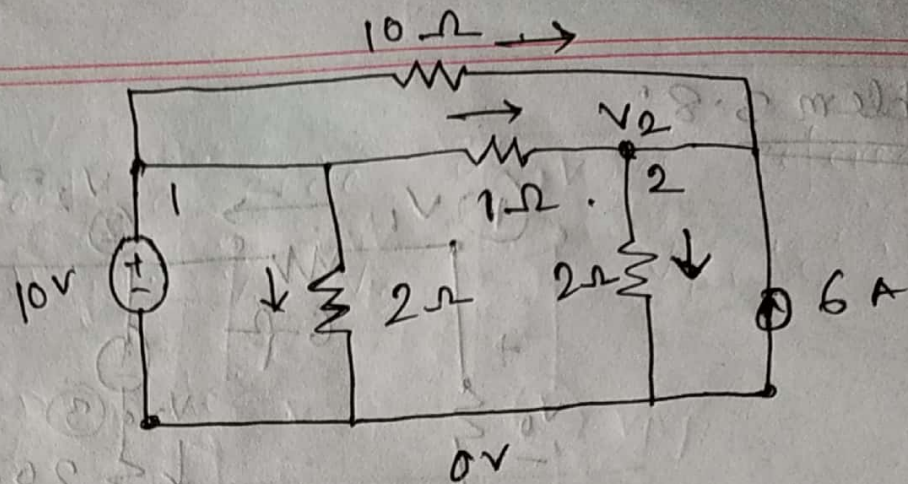 10 Ω
V2
1
1Ω
2
10V
+
-
2Ω
2Ω
6 A
0V